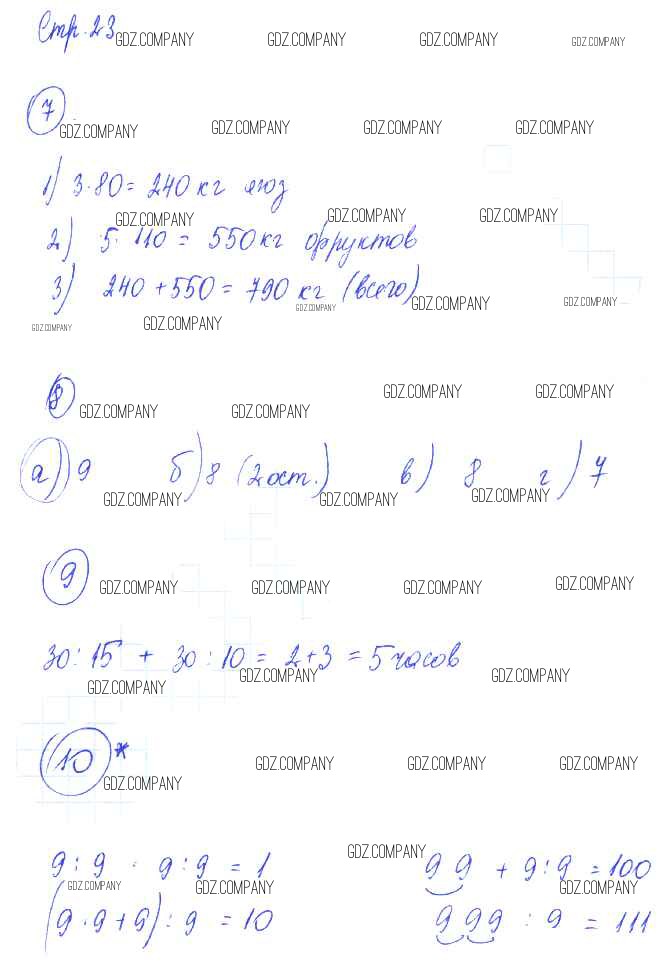 Стр. 23 GDZ.COMPANY GDZ.COMPANY GDZ.COMPANY GDZ.COMPANY
7
GDZ.COMPANY GDZ.COMPANY GDZ.COMPANY GDZ.COMPANY
1) 3·80 = 240 кг ягод
GDZ.COMPANY GDZ.COMPANY GDZ.COMPANY
2) 5·110 = 550 кг фруктов
3) 240 + 550 = 790 кг (всего)
GDZ.COMPANY GDZ.COMPANY GDZ.COMPANY
GDZ.COMPANY GDZ.COMPANY
8
GDZ.COMPANY GDZ.COMPANY GDZ.COMPANY GDZ.COMPANY
а) 9 б) 8 (2 ост.) в) 8 г) 7
GDZ.COMPANY GDZ.COMPANY GDZ.COMPANY
9
GDZ.COMPANY GDZ.COMPANY GDZ.COMPANY GDZ.COMPANY
30 : 15 + 30 : 10 = 2 + 3 = 5 часов
GDZ.COMPANY GDZ.COMPANY GDZ.COMPANY
10*
GDZ.COMPANY GDZ.COMPANY GDZ.COMPANY GDZ.COMPANY
GDZ.COMPANY
9 : 9 · 9 : 9 = 1 99 + 9 : 9 = 100
GDZ.COMPANY GDZ.COMPANY GDZ.COMPANY
(9·9+9) : 9 = 10 999 : 9 = 111